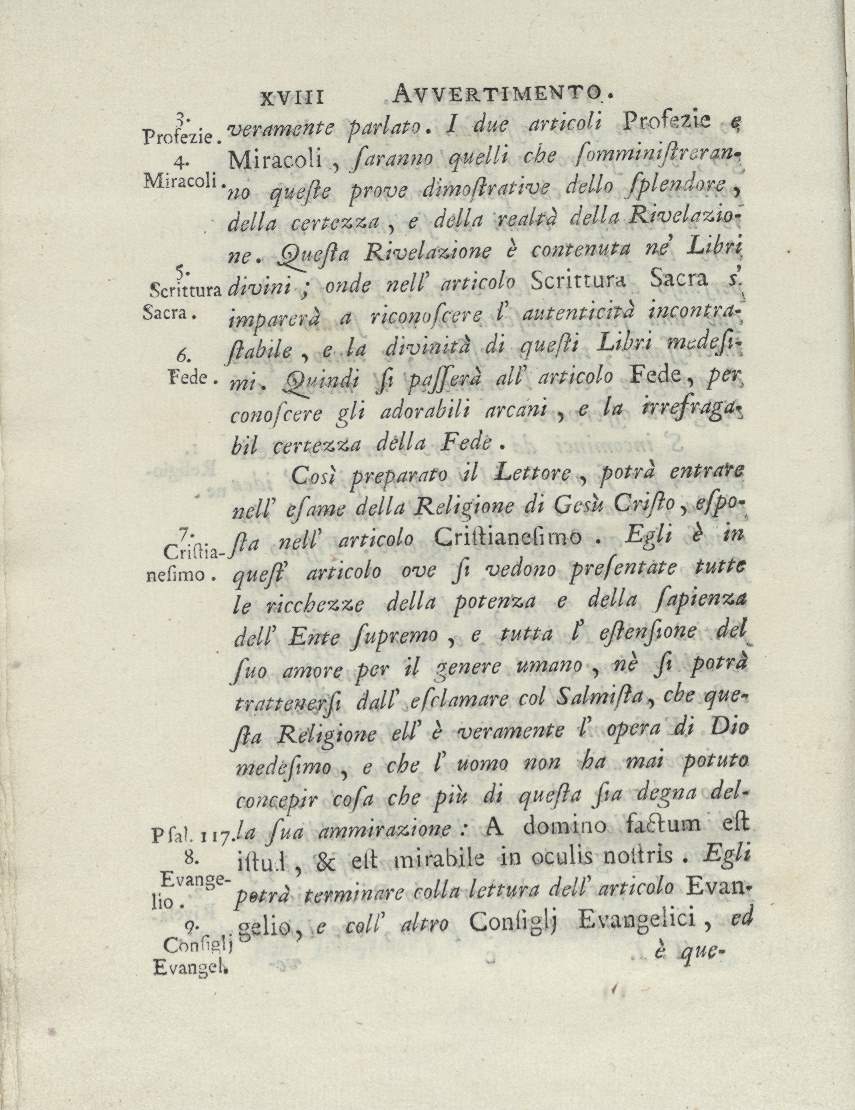 XVIII AVVERTIMENTO.
3.
Profezie.
veramente parlato. I due articoli Profezie e
4.
Miracoli.
Miracoli, ſaranno quelli che ſomminiſtreran-
no queſte prove dimoſtrative dello ſplendore,
della certezza, e della realtà della Rivelazio-
ne. Queſta Rivelazione è contenuta ne' Libri
5.
Scrittura
Sacra.
divini; onde nell' articolo Scrittura Sacra s'
imparerà a riconoſcere l' autenticità incontra-
ſtabile, e la divinità di queſti Libri medeſi-
6.
Fede.
mi. Quindi ſi paſſerà all' articolo Fede, per
conoſcere gli adorabili arcani, e la irrefraga-
bil certezza della Fede.
Così preparato il Lettore, potrà entrare
nell' eſame della Religione di Gesù Criſto, eſpo-
7.
Criſtia-
neſimo.
ſta nell' articolo Criſtianeſimo. Egli è in
queſt' articolo ove ſi vedono preſentate tutte
le ricchezze della potenza e della ſapienza
dell' Ente ſupremo, e tutta l' eſtenſione del
ſuo amore per il genere umano, nè ſi potrà
trattenerſi dall' eſclamare col Salmiſta, che que-
ſta Religione ell' è veramente l' opera di Dio
medeſimo, e che l' uomo non ha mai potuto
concepir coſa che più di queſta ſia degna del-
Pſal. 117.
la ſua ammirazione: A domino factum eſt
8.
Evange-
lio.
iſtud, & eſt mirabile in oculis noſtris. Egli
potrà terminare colla lettura dell' articolo Evan-
9.
Conſiglj
Evangel.
gelio, e coll' altro Conſiglj Evangelici, ed
è que-